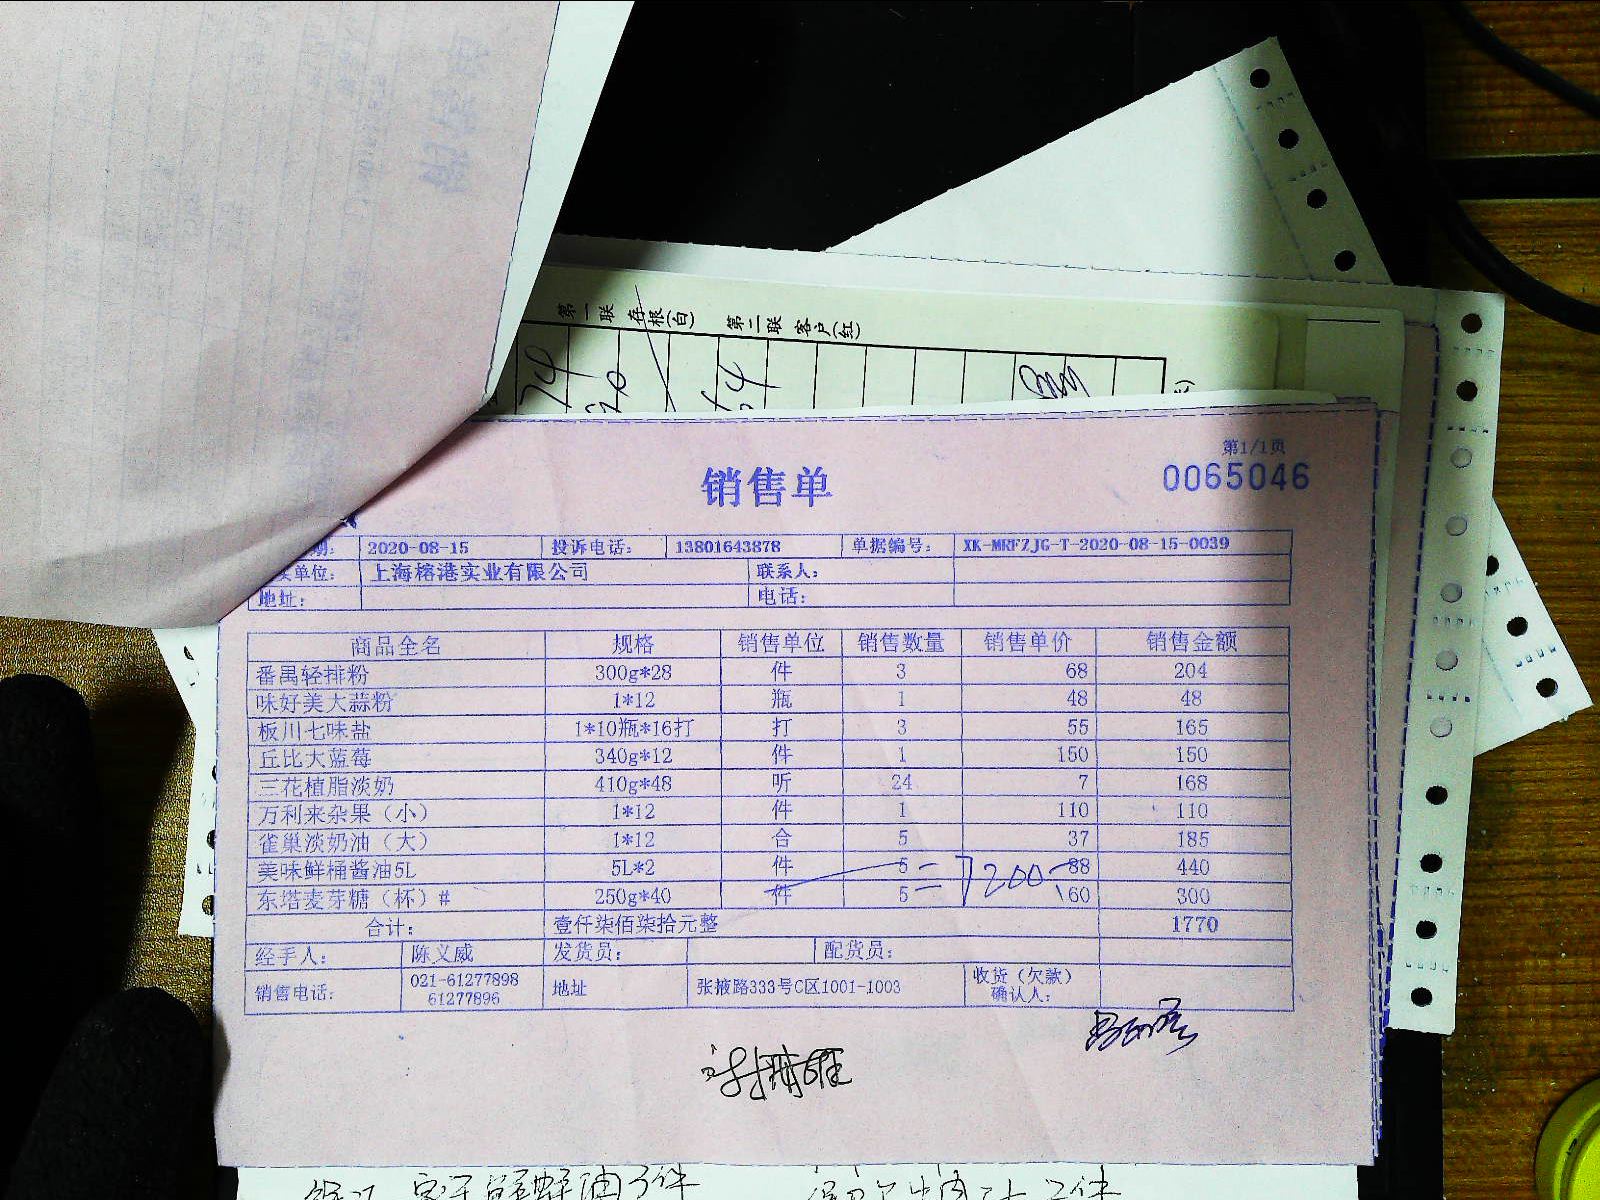 第一联 存根(白) 第二联 客户(红)
第1/1页
销售单
0065046
期: 2020-08-15 投诉电话: 13801643878 单据编号: XK-MRFZJG-T-2020-08-15-0039
单位: 上海榕港实业有限公司 联系人:
地址: 电话:
商品全名 规格 销售单位 销售数量 销售单价 销售金额
番禺轻排粉 300g*28 件 3 68 204
味好美大蒜粉 1*12 瓶 1 48 48
板川七味盐 1*10瓶*16打 打 3 55 165
丘比大蓝莓 340g*12 件 1 150 150
三花植脂淡奶 410g*48 听 24 7 168
万利来杂果（小） 1*12 件 1 110 110
雀巢淡奶油（大） 1*12 合 5 37 185
美味鲜桶酱油5L 5L*2 件 5 88 440
东塔麦芽糖（杯）# 250g*40 件 5 60 300
7200
合计: 壹仟柒佰柒拾元整 1770
经手人: 陈义威 发货员: 配货员:
销售电话: 021-61277898 61277896 地址 张掖路333号C区1001-1003 收货（欠款）确认人: